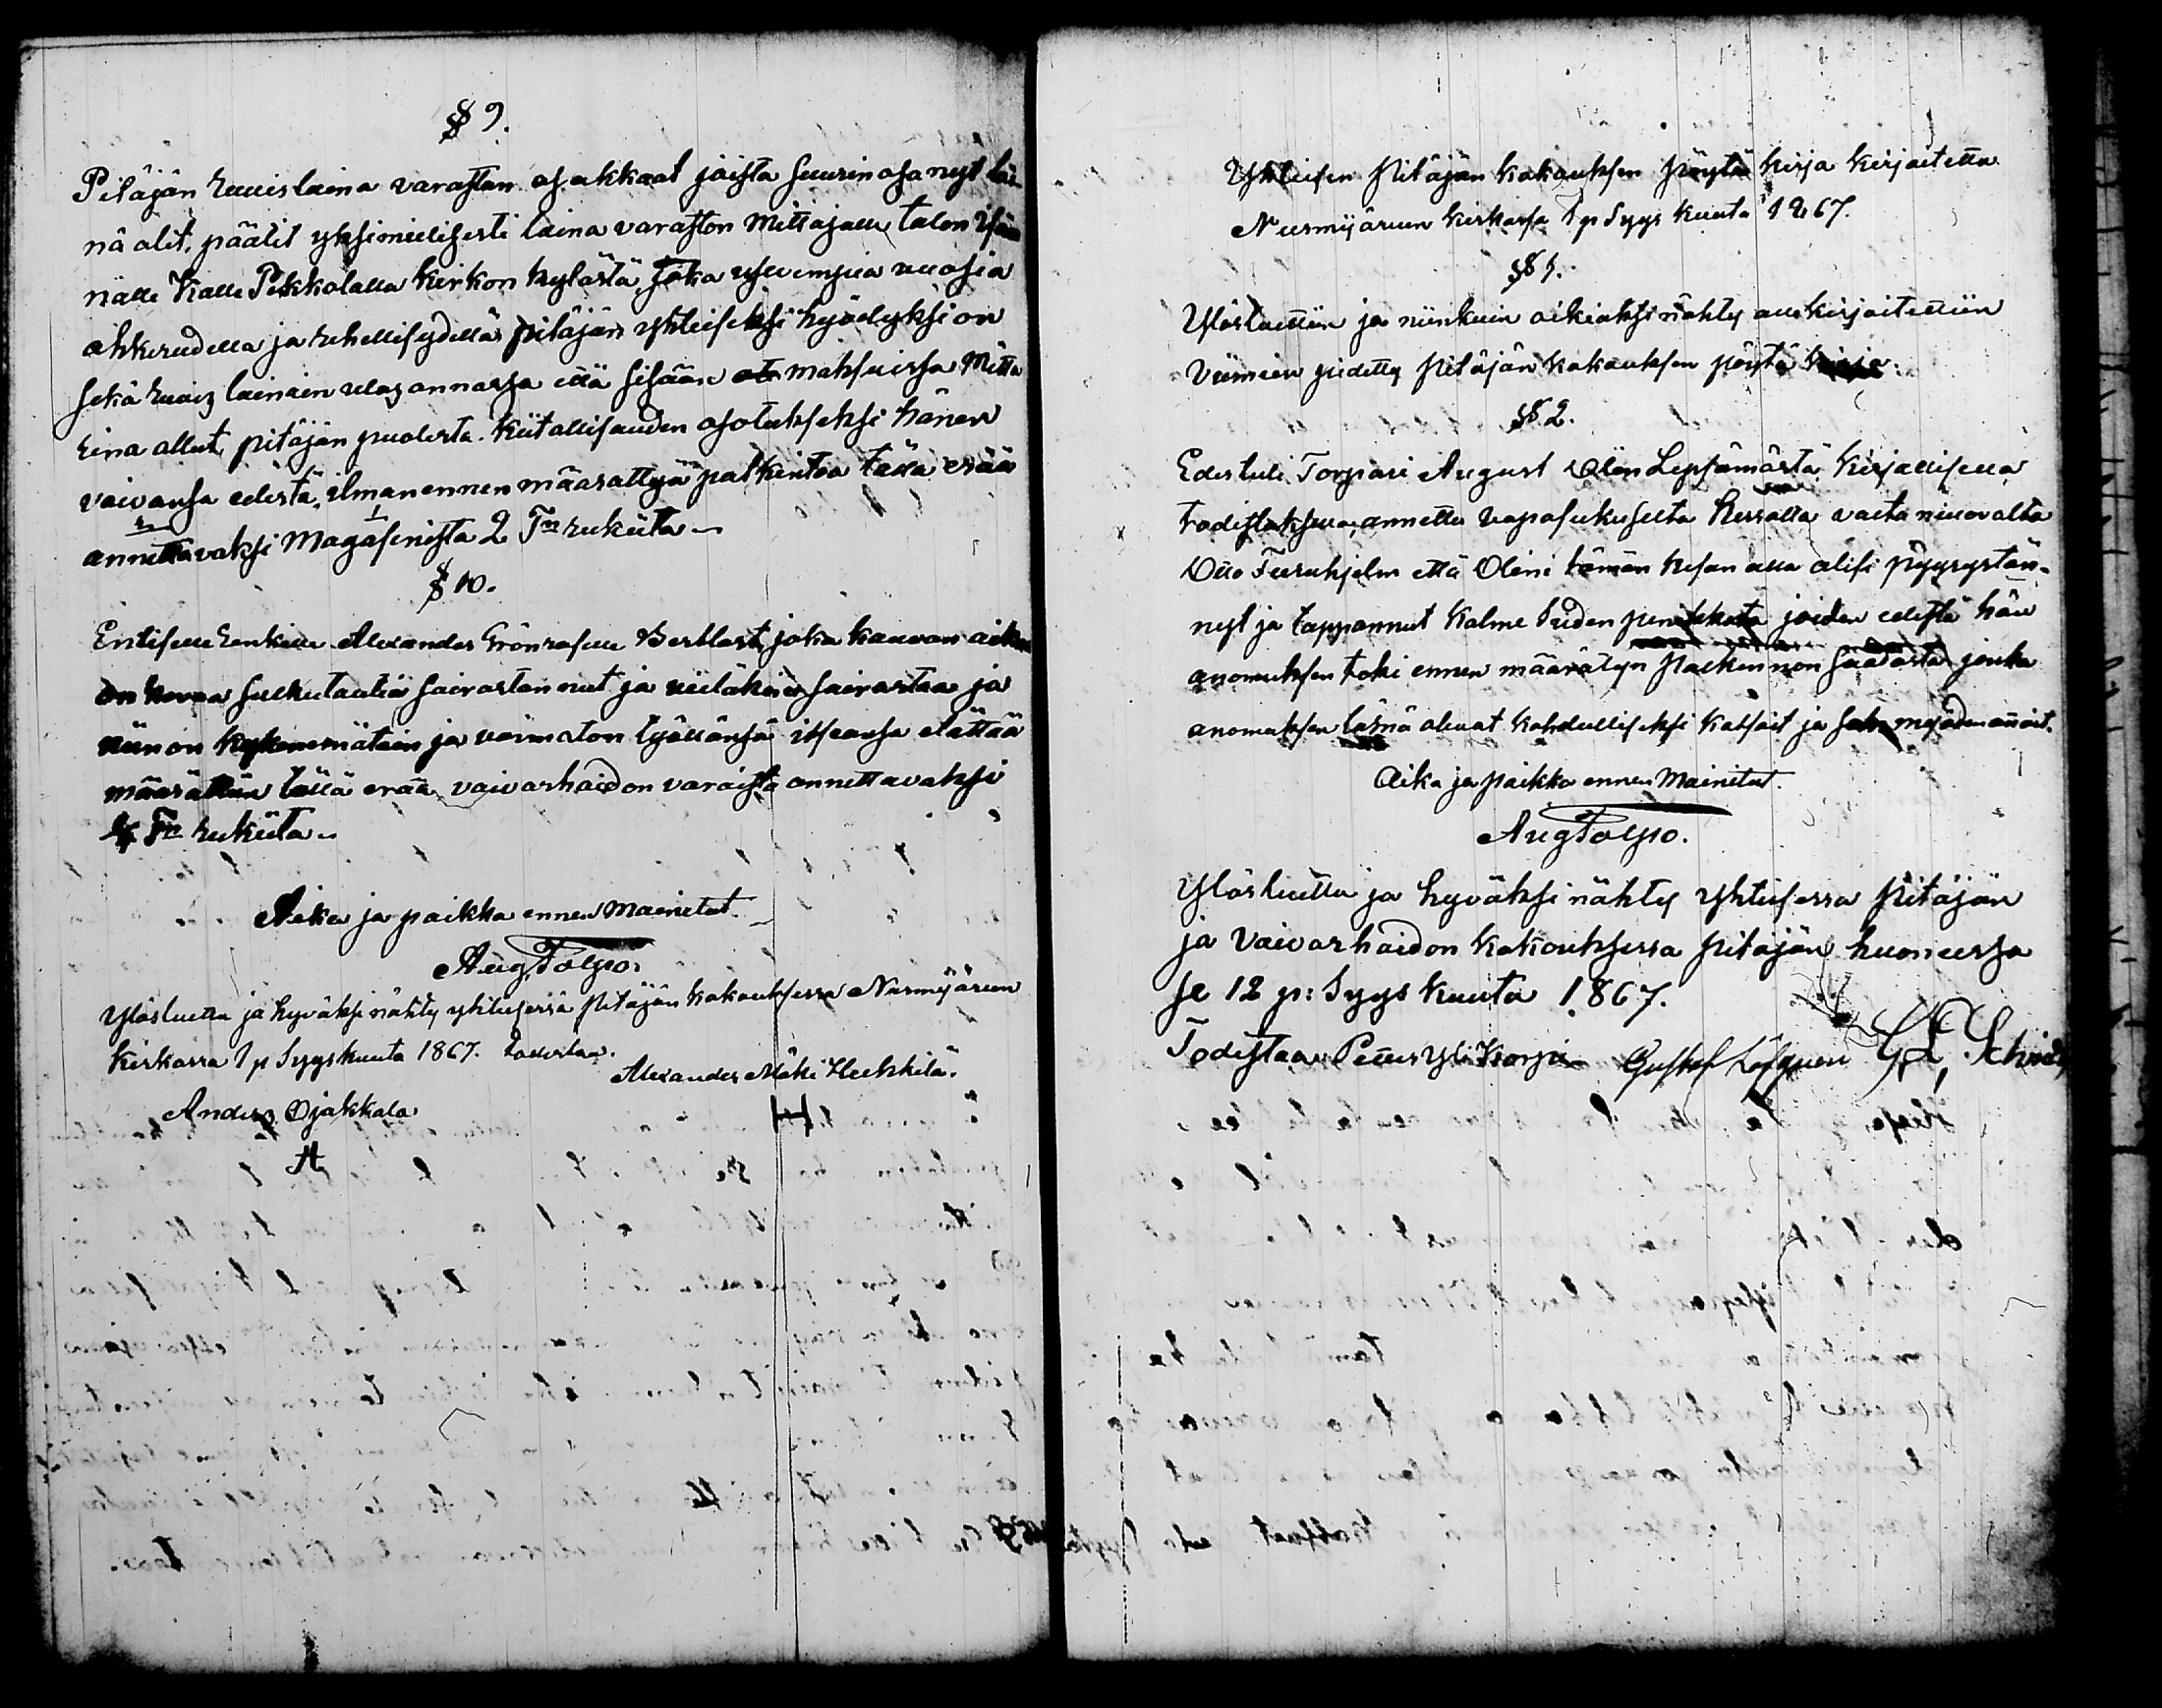 § 9.
Pitäjän ruuislaina varaston osakkaat joista suurin osa nyt läs
nä olit, päätit yksimielisesti laina varaston Mittajalle talon Isän
nälle Kalle Pekkolalla Kirkon kylästä, joka useimpia vuosia
ahkerudella ja rehellisydellä pitäjän yhteiseksi hyödyksi on
sekä ruuis lainain ulos annossa että sisään maksuissa Mitta
rina ollut, pitäjän puolesta kiitollisuuden osotukseksi hänen
vaivansa edestä, ilman ennen määrattyä palkintoa tällä erää
annettavaksi Magasinista 2 Tn rukiita
§ 10.
Entiselle Renkille Alexander Grönroselle Perttlast, joka kauvan aikaa
on kovaa tautia sairastannut ja vieläkin sairastaa ja
niin on kykenemätöin ja voimaton työllänsä itseansä elättää
määrättiin tällä erää vaivashoidon varoista annettavaksi
Tn rukiita
Aika ja paikka ennen Mainitut.
Aug Tolpo.
Ylösluettu ja hyväksi nähty yhteisessä Pitäjän kokouksessa Nurmijärven
Kirkossa 1 p Syyskuuta 1867. todistaa.
Alexander Mäki Heikkilä.
Anders Ojakkala
H
A
Yhteisen Pitäjän kokouksen pöytä kirja kirjoitettu
Nurmijärven kirkossa 1 p Syys kuuta 1867.
§ 1.
Ylösluettiin ja niinkuin oikiaksi nähty allekirjoitettiin
Viimein pidetty Pitäjän kokouksen pöytä kirja.
§ 2.
Edestuli Torpari August Olen Lepsämästä, kirjallisella
todistuksella, annettu vapasukuselta Herralta
Otto Furuhjelm että Oleni tämän kesan alla olisi pyysystän-
nyt ja tappannut kolme Suden penikkata joiden edestä hän
anomuksen teki ennen määrätyn Palkinnon saadasta jonka
anomuksen läsnä olevat kohdulliseksi katsoit ja myödenannoit.
Aika ja paikka ennen Mainitut.
Aug Tolpo.
Ylösluettu ja hyväksi nähty Yhteisessä Pitäjän
ja Vaivashoidon kokouksessa pitäjän huoneessa
se 12 p: Syys kuuta 1867.
Todistaa: Petter Yli Korpi Gustaf Löfgren